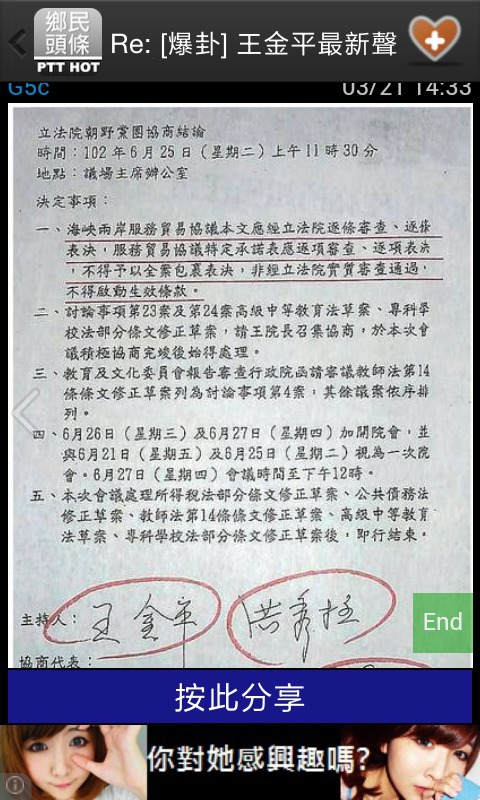 鄉民
頭條
PTT HOT
Re: [爆卦] 王金平最新聲
G5c
03/21 14:33
立法院朝野黨團協商結論
時間：102 年 6 月 25 日（星期二）上午 11 時 30 分
地點：議場主席辦公室
決定事項：
一、海峽兩岸服務貿易協議本文應經立法院逐條審查、逐條
表決，服務貿易協議特定承諾表應逐項審查、逐項表決
，不得予以全案包裹表決，非經立法院實質審查通過，
不得啟動生效條款。
二、討論事項第23案及第24案高級中等教育法草案、專科學
校法部分條文修正草案，請王院長召集協商，於本次會
議積極協商完竣後始得處理。
三、教育及文化委員會報告審查行政院函請審議教師法第14
條條文修正草案列為討論事項第4案，其餘議案依序排
列。
四、6月26日（星期三）及6月27日（星期四）加開院會，並
與6月21日（星期五）及6月25日（星期二）視為一次院
會。6月27日（星期四）會議時間至下午12時。
五、本次會議處理所得稅法部分條文修正草案、公共債務法
修正草案、教師法第14條條文修正草案、高級中等教育
法草案、專科學校法部分條文修正草案後，即行結束。
主持人：王金平 洪秀柱
End
協商代表：
按此分享
你對她感興趣嗎?